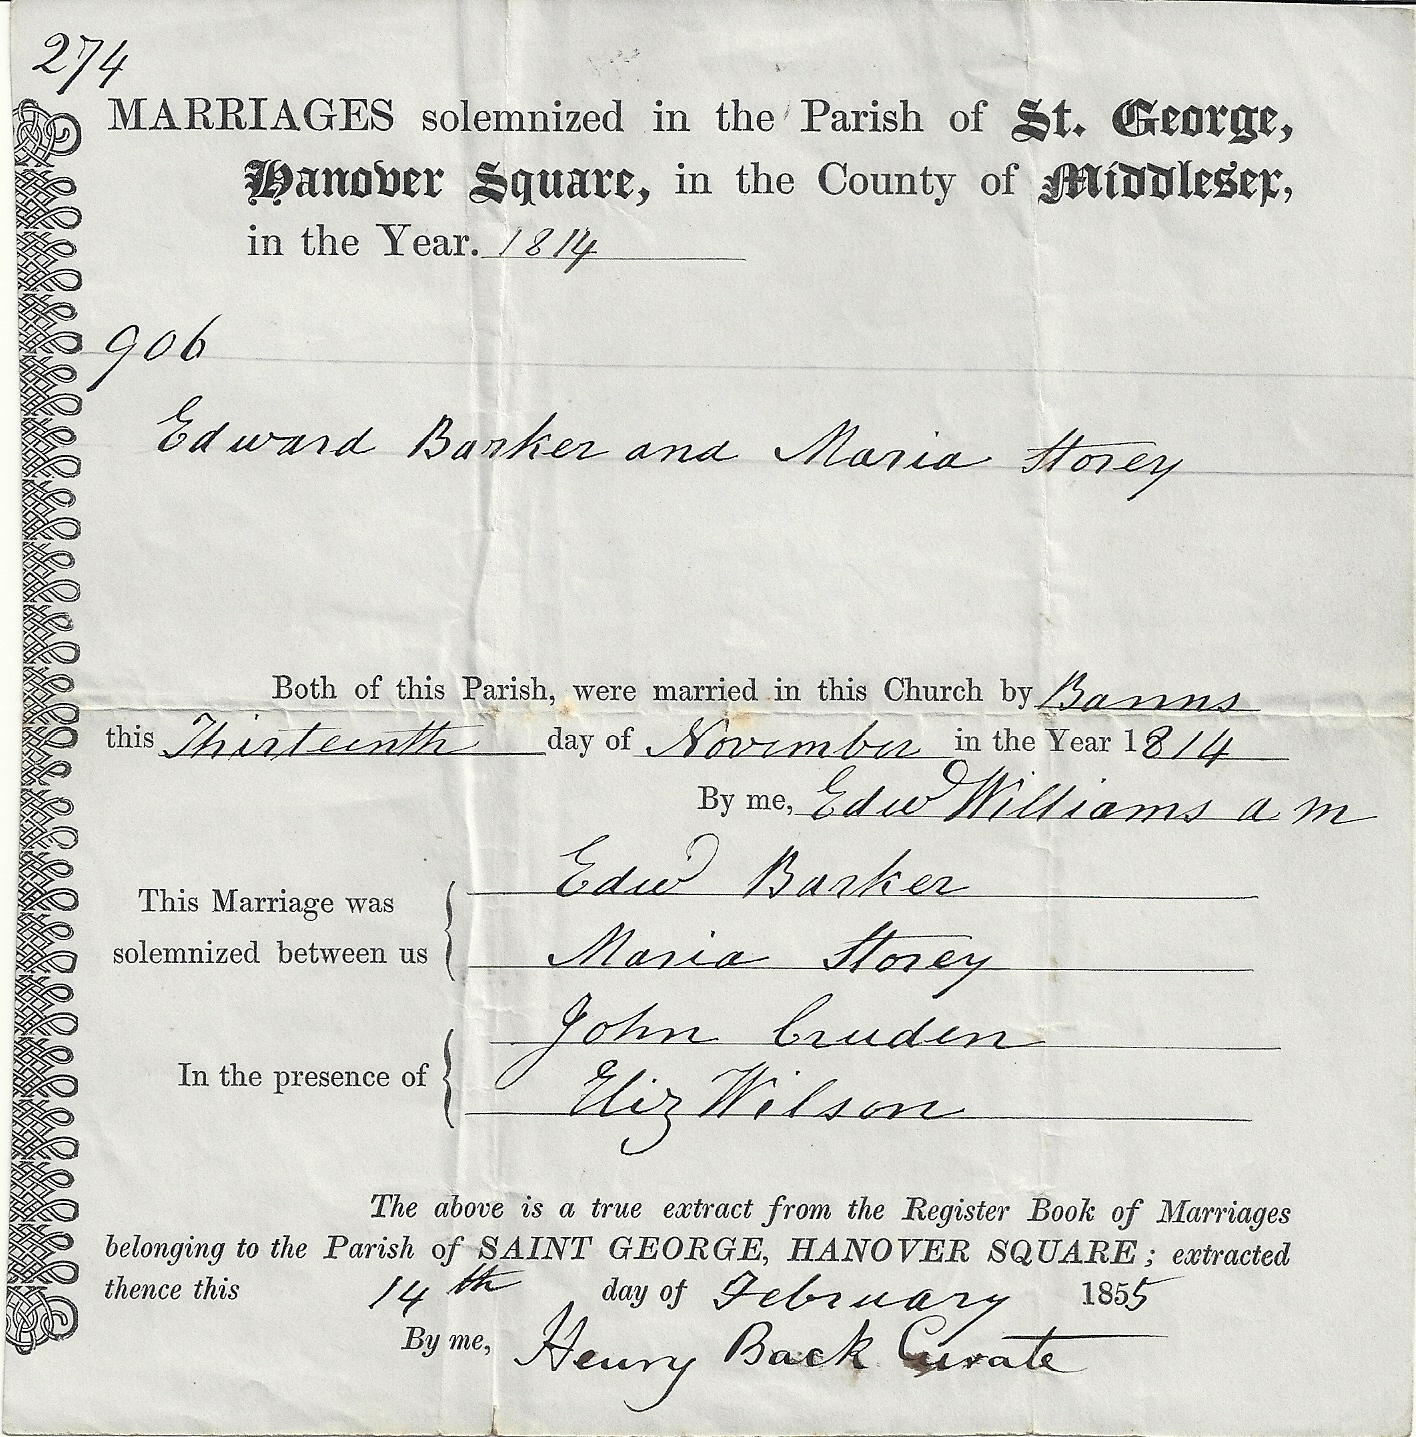 274
MARRIAGES solemnized in the Parish of St. George,
Hanover Square, in the County of Middlesex,
in the Year. 1814
906
Edward Barker and Maria Storey
Both of this Parish, were married in this Church by Banns
this Thirteenth day of November in the Year 1814
By me, Edwd Williams a m
This Marriage was solemnized between us
Edwd Barker
Maria Storey
In the presence of
John Cruden
Eliz Wilson
The above is a true extract from the Register Book of Marriages
belonging to the Parish of SAINT GEORGE, HANOVER SQUARE; extracted
thence this 14th day of February 1855
By me, Henry Back Curate